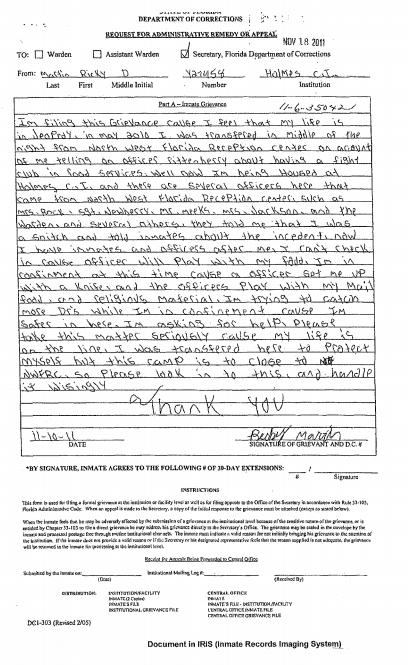 STATE OF FLORIDA
DEPARTMENT OF CORRECTIONS
REQUEST FOR ADMINISTRATIVE REMEDY OR APPEAL
NOV 18 2011
TO: Warden Assistant Warden Secretary, Florida Department of Corrections
From: Martin Ricky D Y21458 Holmes C.I.
Last First Middle Initial Number Institution
Part A – Inmate Grievance 11-6-35042
Im filing this Grievance cause I feel that my life is
in Jeaprdy, in may 2010 I was transfered in Middle of the
night from North West Florida Reception center on account
of me telling on officer Fittenherry about having a fight
club in food services. Well now Im being Housed at
Holmes C.I. and there are several officers here that
came from North West Florida Reception center such as
Mrs. Rock, Sgt. Newberry, Ms. Meeks, Mrs. Jackson, and the
Warden and several others, they told me that I was
a snitch and told inmates about the incedent, now
I have inmates and officers after me. I can't check
in cause officer will Play with my food. Im in
confinment at this time cause a officer set me up
with a Knife, and the officers Play with my Mail
food, and religinus Material, Im trying to catch
more Dr's while Im in confinement cause Im
safer in here. Im asking for help, Please
take this matter seriously cause my life is
on the line, I was transfered here to Protect
myself but this camp is to close to
NWFRC, so Please look in to this, and handle
it wisingly
Thank you
11-10-11
DATE
Ricky Martin
SIGNATURE OF GRIEVANT AND D.C. #
*BY SIGNATURE, INMATE AGREES TO THE FOLLOWING # OF 30-DAY EXTENSIONS: /
# Signature
INSTRUCTIONS
This form is used for filing a formal grievance at the institution or facility level as well as for filing appeals to the Office of the Secretary in accordance with Rule 33-103,
Florida Administrative Code. When an appeal is made to the Secretary, a copy of the initial response to the grievance must be attached (except as stated below).
When the inmate feels that he may be adversely affected by the submission of a grievance at the institutional level because of the sensitive nature of the grievance, or is
entitled by Chapter 33-103 to file a direct grievance he may address his grievance directly to the Secretary's Office. The grievance may be sealed in the envelope by the
inmate and processed postage free through routine institutional channels. The inmate must indicate a valid reason for not initially bringing his grievance to the attention of
the institution. If the inmate does not provide a valid reason or if the Secretary or his designated representative feels that the reason supplied is not adequate, the grievance
will be returned to the inmate for processing at the institutional level.
Receipt for Appeals Being Forwarded to Central Office
Submitted by the inmate on: Institutional Mailing Log #:
(Date) (Received By)
DISTRIBUTION: INSTITUTION/FACILITY CENTRAL OFFICE
INMATE (2 Copies) INMATE
INMATE'S FILE INMATE'S FILE - INSTITUTION/FACILITY
INSTITUTIONAL GRIEVANCE FILE CENTRAL OFFICE INMATE FILE
CENTRAL OFFICE GRIEVANCE FILE
DC1-303 (Revised 2/05)
Document in IRIS (Inmate Records Imaging System)